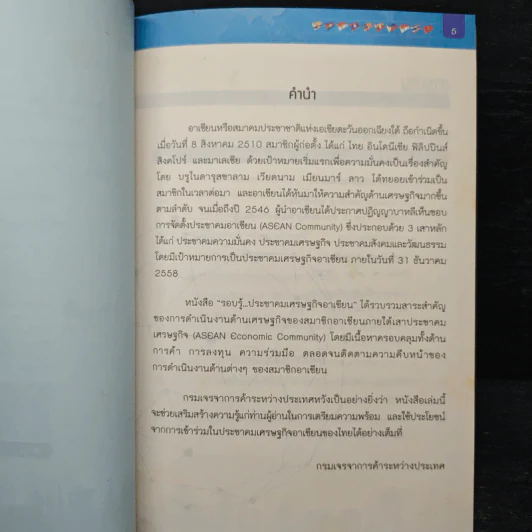 5
คำนำ
อาเซียนหรือสมาคมประชาชาติแห่งเอเชียตะวันออกเฉียงใต้ ถือกำเนิดขึ้น
เมื่อวันที่ 8 สิงหาคม 2510 สมาชิกผู้ก่อตั้ง ได้แก่ ไทย อินโดนีเซีย ฟิลิปปินส์
สิงคโปร์ และมาเลเซีย ด้วยเป้าหมายเริ่มแรกเพื่อความมั่นคงเป็นเรื่องสำคัญ
โดย บรูไนดารุสซาลาม เวียดนาม เมียนมาร์ ลาว ได้ทยอยเข้าร่วมเป็น
สมาชิกในเวลาต่อมา และอาเซียนได้หันมาให้ความสำคัญด้านเศรษฐกิจมากขึ้น
ตามลำดับ จนเมื่อถึงปี 2546 ผู้นำอาเซียนได้ประกาศปฏิญญาบาหลีเห็นชอบ
การจัดตั้งประชาคมอาเซียน (ASEAN Community) ซึ่งประกอบด้วย 3 เสาหลัก
ได้แก่ ประชาคมความมั่นคง ประชาคมเศรษฐกิจ ประชาคมสังคมและวัฒนธรรม
โดยมีเป้าหมายการเป็นประชาคมเศรษฐกิจอาเซียน ภายในวันที่ 31 ธันวาคม
2558
หนังสือ “รอบรู้...ประชาคมเศรษฐกิจอาเซียน” ได้รวบรวมสาระสำคัญ
ของการดำเนินงานด้านเศรษฐกิจของสมาชิกอาเซียนภายใต้เสาประชาคม
เศรษฐกิจ (ASEAN Economic Community) โดยมีเนื้อหาครอบคลุมทั้งด้าน
การค้า การลงทุน ความร่วมมือ ตลอดจนติดตามความคืบหน้าของ
การดำเนินงานด้านต่างๆ ของสมาชิกอาเซียน
กรมเจรจาการค้าระหว่างประเทศหวังเป็นอย่างยิ่งว่า หนังสือเล่มนี้
จะช่วยเสริมสร้างความรู้แก่ท่านผู้อ่านในการเตรียมความพร้อม และใช้ประโยชน์
จากการเข้าร่วมในประชาคมเศรษฐกิจอาเซียนของไทยได้อย่างเต็มที่
กรมเจรจาการค้าระหว่างประเทศ